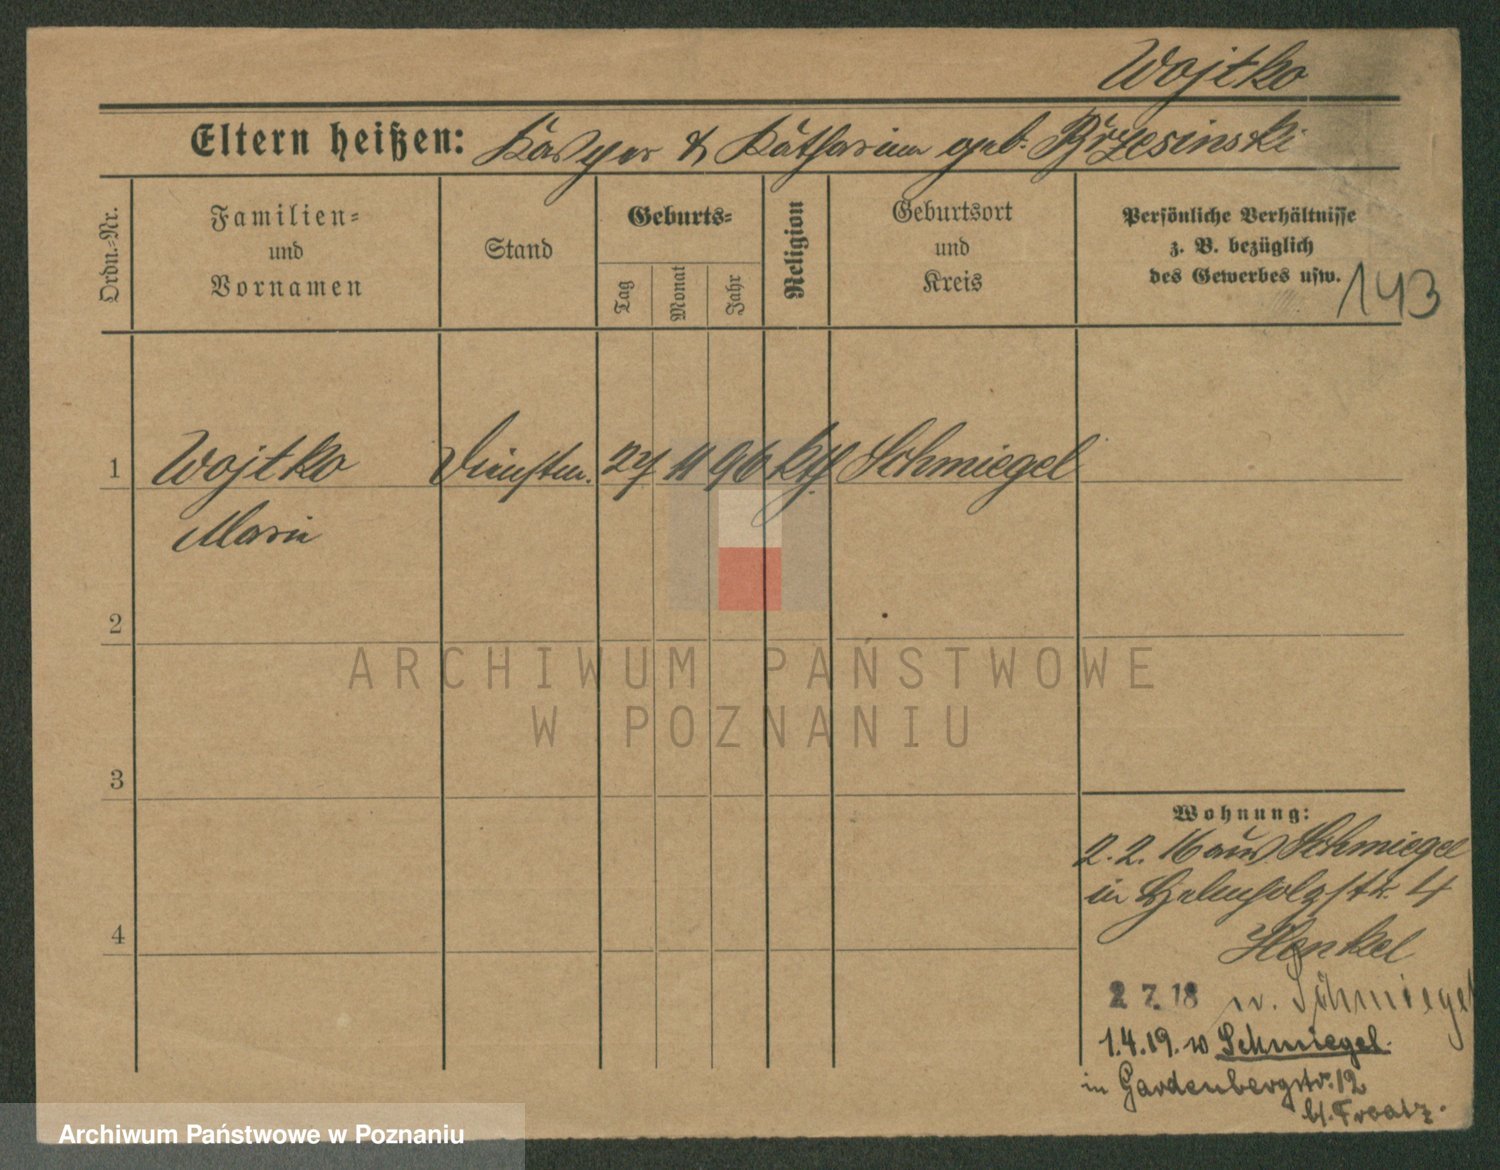 Wojtko
Eltern heißen: Kasper & Katharina geb. Brzesinski
Ordn.-Nr.
Familien-
und
Vornamen
Stand
Geburts-
Tag
Monat
Jahr
Religion
Geburtsort
und
Kreis
Persönliche Verhältnisse
z. B. bezüglich
des Gewerbes usw.
143
1 Wojtko Dienstm. 27 11 96 kth Schmiegel
Marie
2
3
4
ARCHIWUM PAŃSTWOWE
W POZNANIU
Wohnung:
2. 2. 16 aus Schmiegel
in 4
Henkel
2 7. 18 n. Schmiegel
1.4.19. w Schmiegel.
in Gardenbergstr. 12
b/.
Archiwum Państwowe w Poznaniu